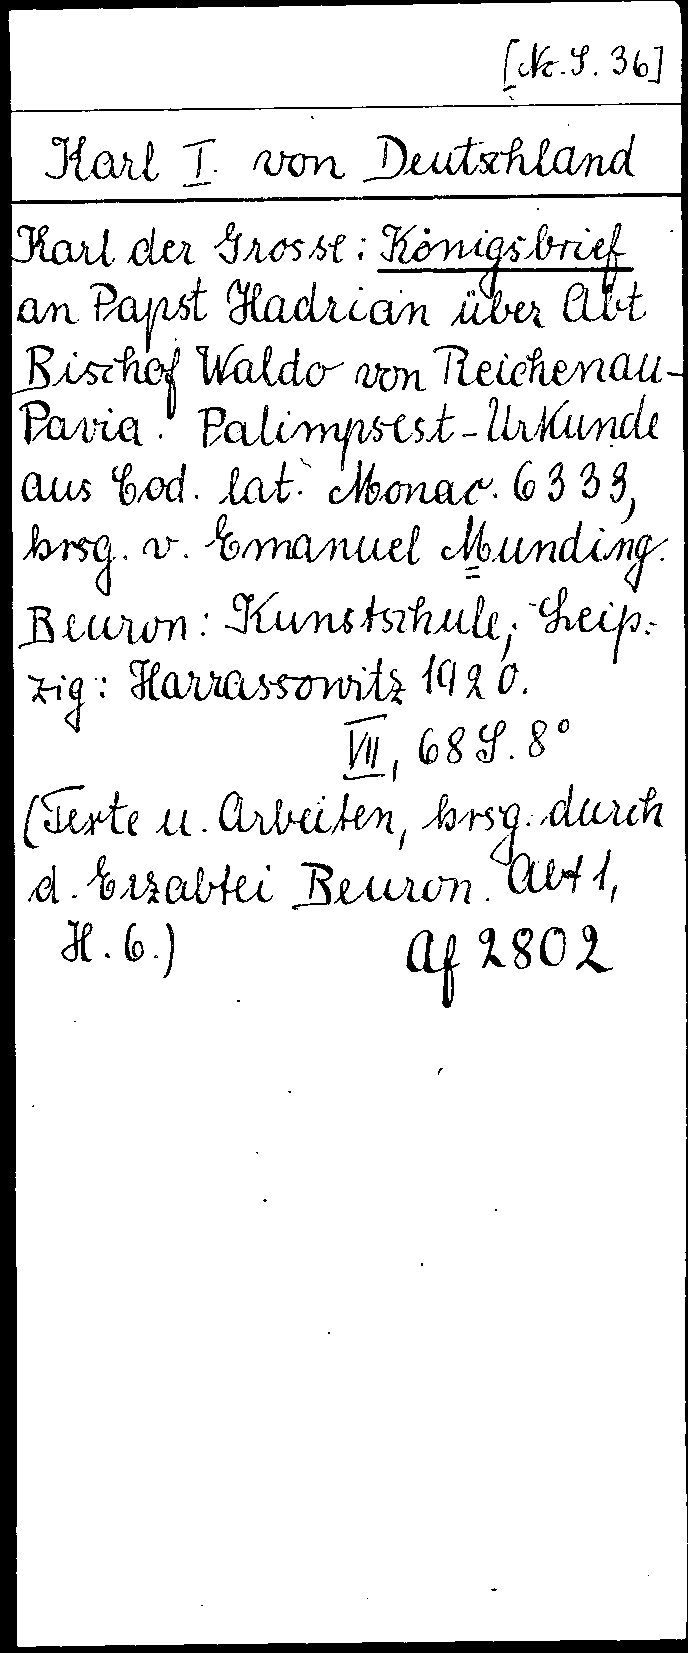 [Nc. S. 36]
Karl I. von Deutschland
Karl der Grosse: Königsbrief
an Papst Hadrian über Abt
Bischof Waldo von Reichenau-
Pavia. Palimpsest-Urkunde
aus Cod. lat. Monac. 6333,
hrsg. v. Emanuel Munding.
Beuron: Kunstschule; Leip-
zig: Harrassowitz 1920.
VII, 68 S. 8°
(Texte u. Arbeiten, hrsg. durch
d. Erzabtei Beuron. Abt 1,
H. 6.) Af 2802